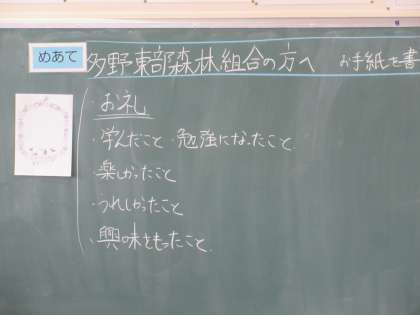 めあて 多野東部森林組合の方へ お手紙を書
・お礼
・学んだこと・勉強になったこと
・楽しかったこと
・うれしかったこと
・興味をもったこと。